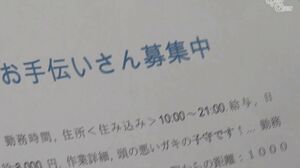 お手伝いさん募集中
勤務時間, 住所<住み込み>10:00~21:00, 給与, 日
給8,000 円, 作業詳細, 頭の悪いガキの子守です!... 勤務
からの距離:1000